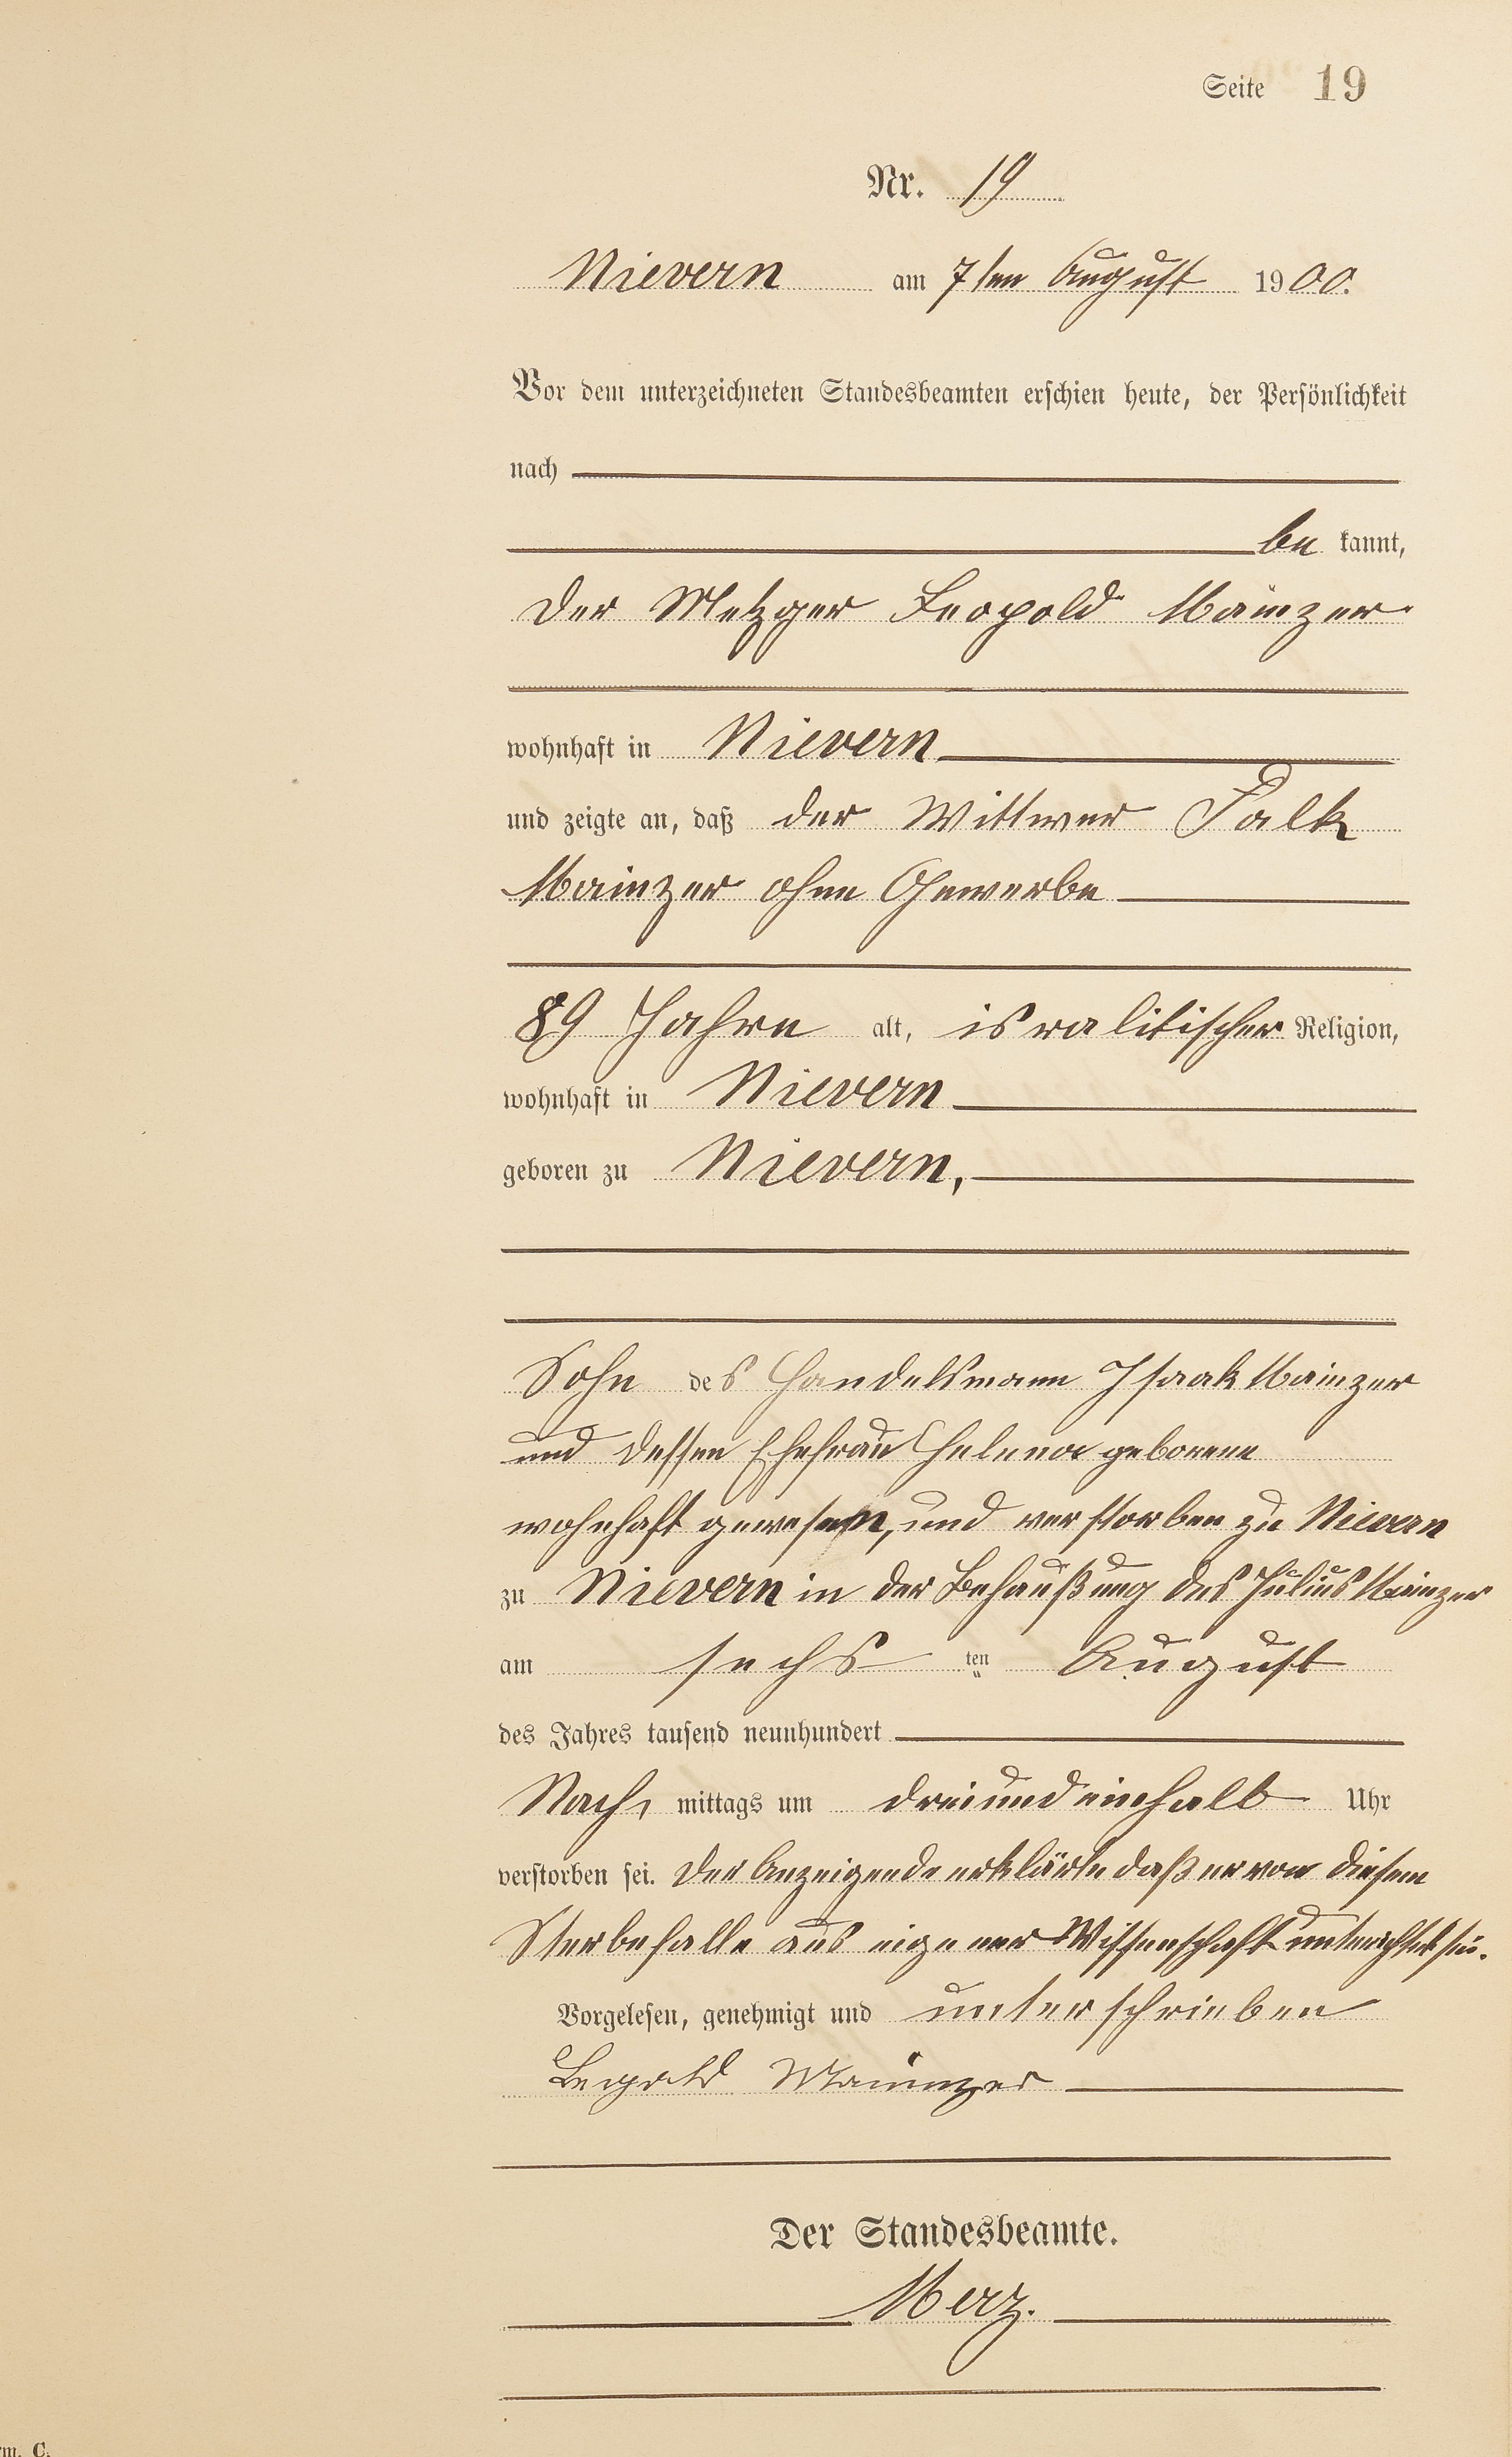 Seite 19
Nr. 19
Nievern am 7ten August 1900.
Vor dem unterzeichneten Standesbeamten erschien heute, der Persönlichkeit
nach
be kannt,
der Metzger Leopold Mainzer
wohnhaft in Nievern
und zeigte an, daß der Wittwer Falk
Mainzer ohne Gewerbe
89 Jahre alt, isralitischer Religion,
wohnhaft in Nievern
geboren zu Nievern,
Sohn des Handelsmann Isaak Mainzer
und dessen Ehefrau Helena geborene
wohnhaft gewesen, und verstorben zu Nievern
zu Nievern in der Behaußung des Julius Mainzer
am sechs ten August
des Jahres tausend neunhundert
Nach mittags um dreiundeinhalb Uhr
verstorben sei. Der Anzeigende erklärte daß er von diesem
Sterbefalle aus eigener Wissenschaft unterrichtet sei.
Vorgelesen, genehmigt und unterschrieben
Leopold Mainzer
Der Standesbeamte.
Merz.
rm. C.